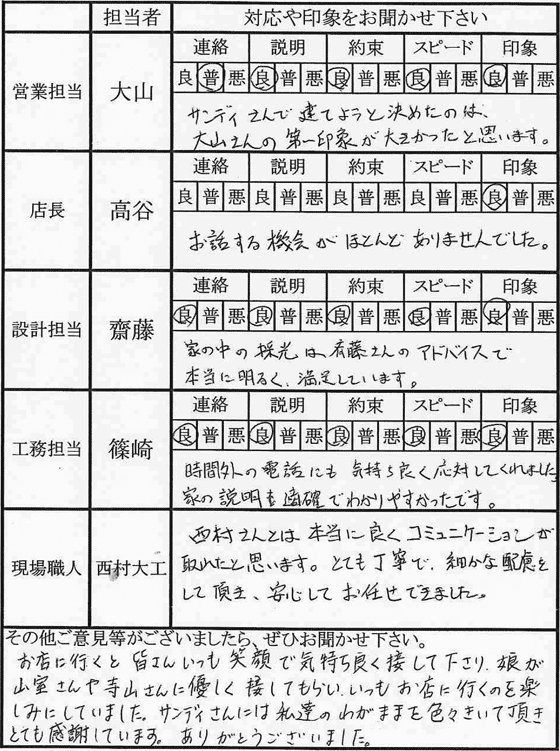 担当者 対応や印象をお聞かせ下さい
営業担当 大山
連絡 説明 約束 スピード 印象
良 普 悪 良 普 悪 良 普 悪 良 普 悪 良 普 悪
サンディさんで建てようと決めたのは、
大山さんの第一印象が大きかったと思います。
店長 高谷
連絡 説明 約束 スピード 印象
良 普 悪 良 普 悪 良 普 悪 良 普 悪 良 普 悪
お話する機会がほとんどありませんでした。
設計担当 齋藤
連絡 説明 約束 スピード 印象
良 普 悪 良 普 悪 良 普 悪 良 普 悪 良 普 悪
家の中の採光は斉藤さんのアドバイスで
本当に明るく、満足しています。
工務担当 篠崎
連絡 説明 約束 スピード 印象
良 普 悪 良 普 悪 良 普 悪 良 普 悪 良 普 悪
時間外の電話にも気持ち良く応対してくれました。
家の説明も適確でわかりやすかったです。
現場職人 西村大工
西村さんとは本当に良くコミュニケーションが
取れたと思います。とても丁寧で、細かな配慮を
して頂き、安心してお任せできました。
その他ご意見等がございましたら、ぜひお聞かせ下さい。
お店に行くと皆さんいつも笑顔で気持ち良く接して下さり、娘が
山室さんや寺山さんに優しく接してもらい、いつもお店に行くのを楽
しみにしていました。サンディさんには私達のわがままを色々きいて頂き
とても感謝しています。ありがとうございました。